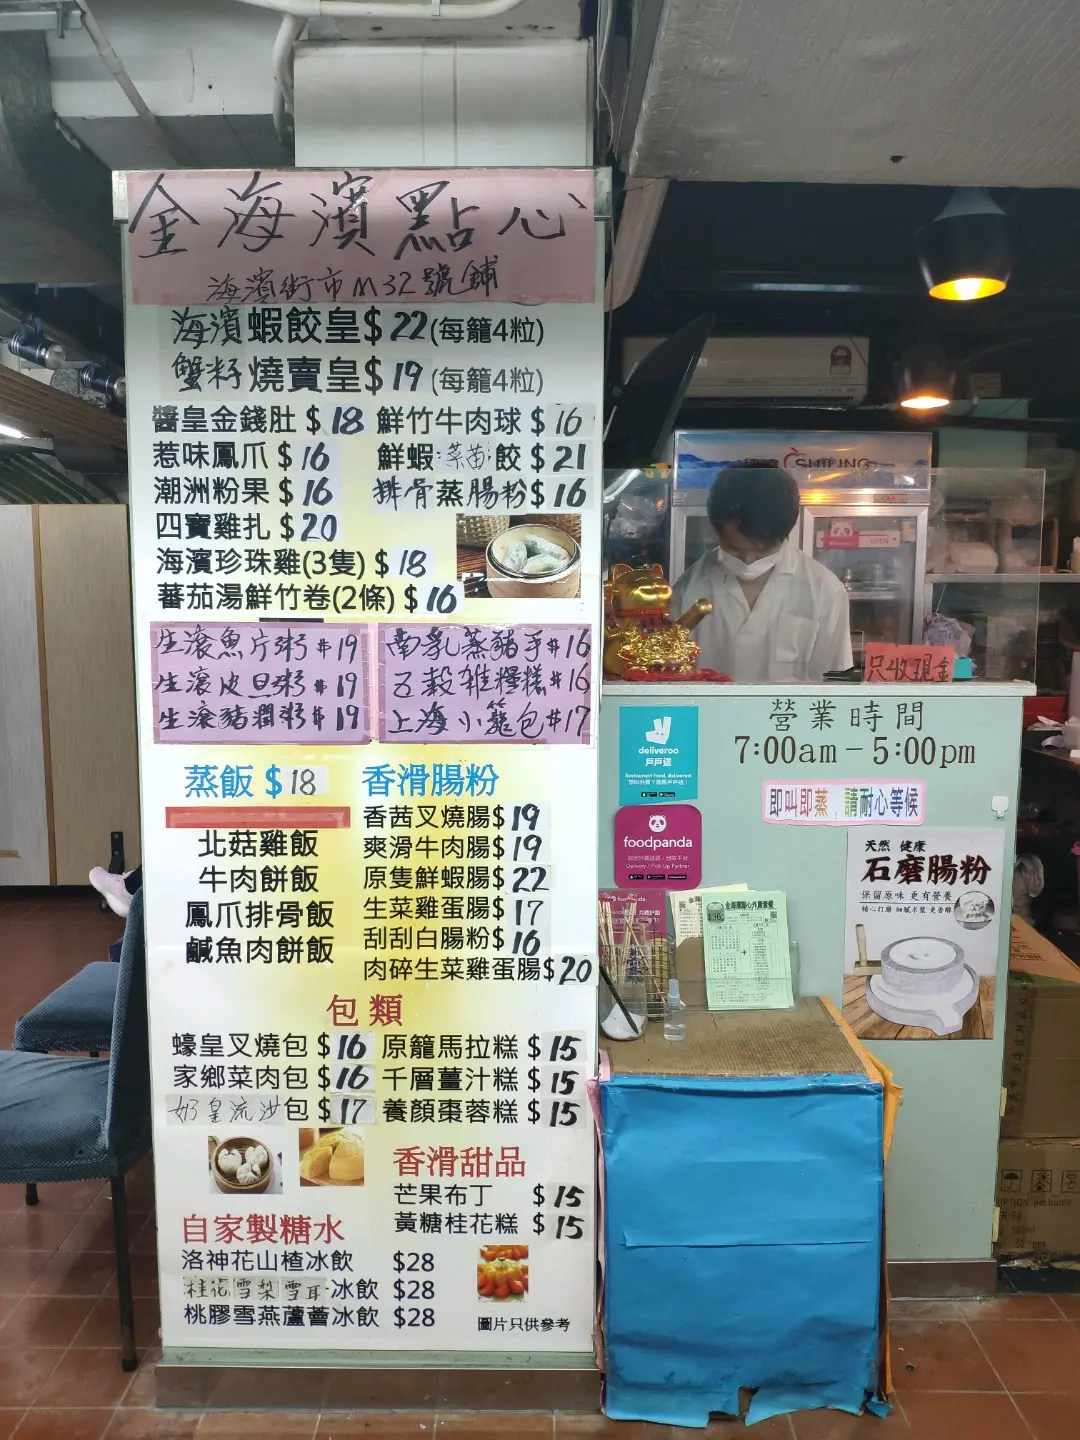 金海濱點心
海濱街市M32號鋪
海濱蝦餃皇$22(每籠4粒)
蟹籽燒賣皇$19(每籠4粒)
醬皇金錢肚$18 鮮竹牛肉球$16
惹味鳳爪$16 鮮蝦菜苗餃$21
潮洲粉果$16 排骨蒸腸粉$16
四寶雞扎$20
海濱珍珠雞(3隻)$18
蕃茄湯鮮竹卷(2條)$16
生滾魚片粥$19 南乳蒸豬手$16
生滾皮旦粥$19 五穀雜糧糕$16
生滾豬潤粥$19 上海小籠包$17
蒸飯$18
北菇雞飯
牛肉餅飯
鳳爪排骨飯
鹹魚肉餅飯
香滑腸粉
香茜叉燒腸$19
爽滑牛肉腸$19
原隻鮮蝦腸$22
生菜雞蛋腸$17
刮刮白腸粉$16
肉碎生菜雞蛋腸$20
包類
蠔皇叉燒包$16 原籠馬拉糕$15
家鄉菜肉包$16 千層薑汁糕$15
奶皇流沙包$17 養顏棗蓉糕$15
香滑甜品
芒果布丁 $15
黃糖桂花糕 $15
自家製糖水
洛神花山楂冰飲 $28
桂花雪梨雪耳冰飲 $28
桃膠雪燕蘆薈冰飲 $28
圖片只供參考
SHIPING
只收現金
營業時間
7:00am-5:00pm
即叫即蒸 請耐心等候
deliveroo
戶戶送
Restaurant food, delivered
foodpanda
Delivery / Pick Up Partner
天然 健康
石磨腸粉
保留原味 更有營養
精心打磨 細膩米漿 更香醇
金海濱點心外賣套餐
pet bottle